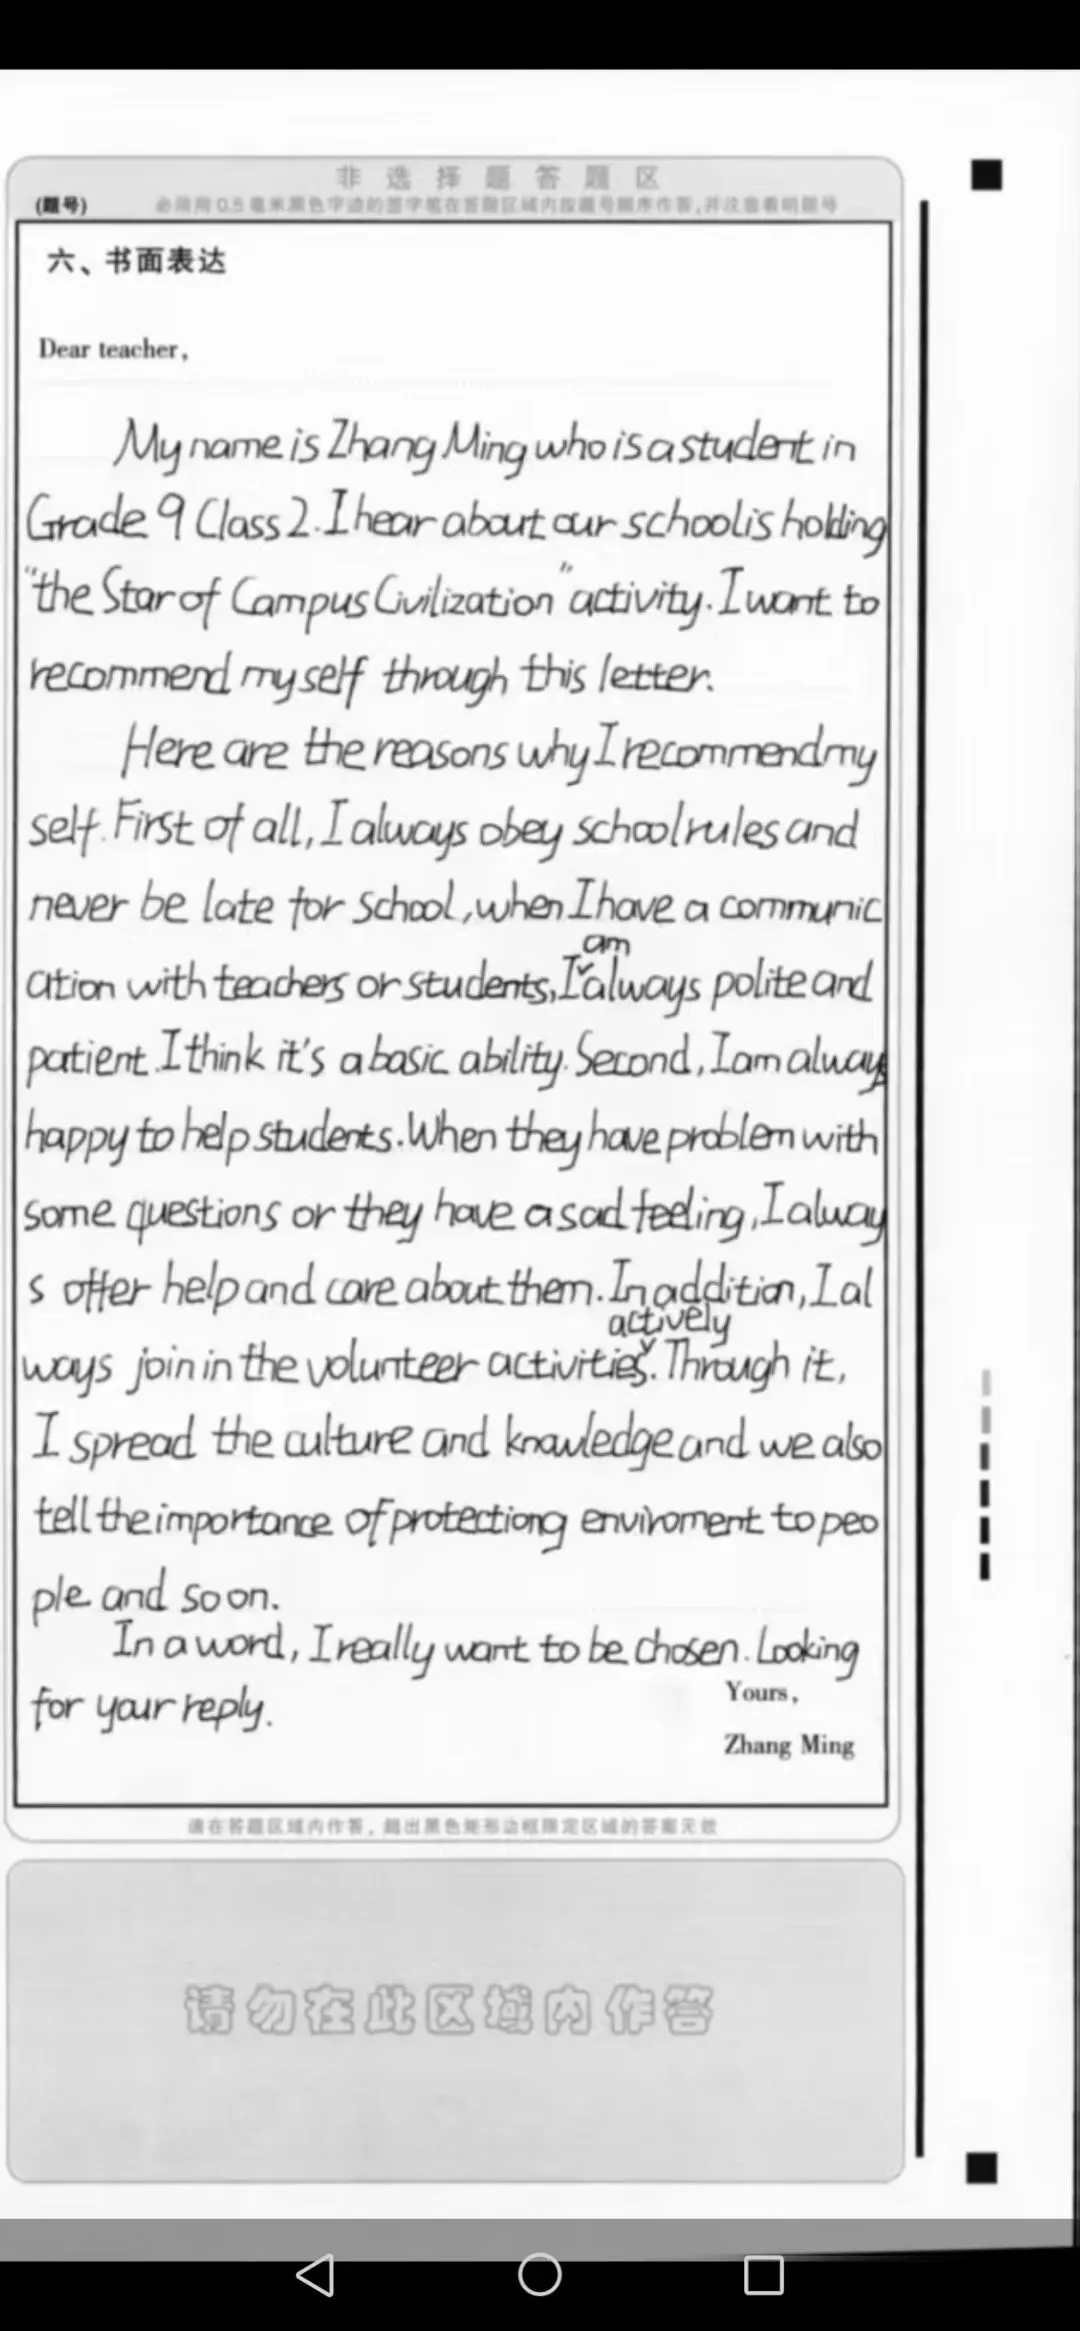 非选择题答题区
(题号) 必须用0.5毫米黑色字迹的签字笔在答题区域内按题号顺序作答,并注意看明题号
六、书面表达
Dear teacher,
My name is Zhang Ming who is a student in
Grade 9 Class 2. I hear about our school is holding
"the Star of Campus Civilization" activity. I want to
recommend myself through this letter.
Here are the reasons why I recommend my
self. First of all, I always obey school rules and
never be late for school, when I have a communic
am
ation with teachers or students, I always polite and
patient. I think it's a basic ability. Second, I am always
happy to help students. When they have problem with
some questions or they have a sad feeling, I alway
s offer help and care about them. In addition, I al
actively
ways join in the volunteer activities. Through it,
I spread the culture and knowledge and we also
tell the importance of protectiong enviroment to peo
ple and so on.
In a word, I really want to be chosen. Looking
for your reply.
Yours,
Zhang Ming
请在答题区域内作答，超出黑色矩形边框限定区域的答案无效
请勿在此区域内作答